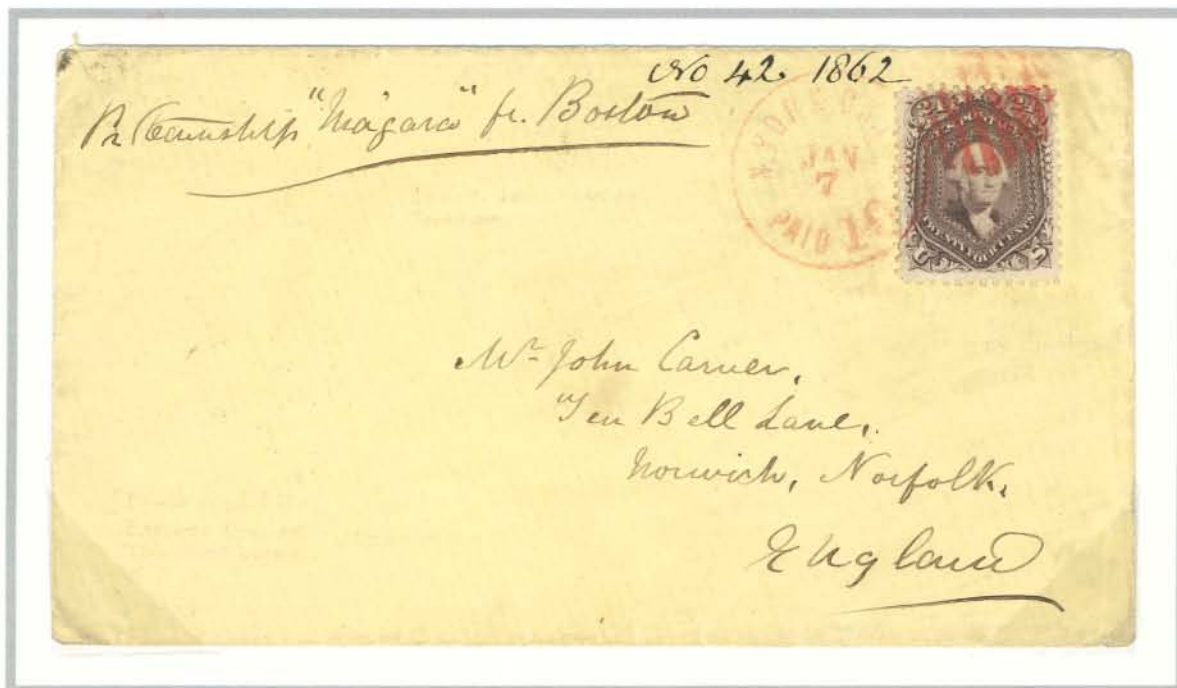 No 42. 1862
Pr Steamship "Niagara" fr. Boston
JAN
7
PAID
24 24
TWENTY FOUR CENTS
U S
Mr John Carver,
Ten Bell Lane,
Norwich, Norfolk,
England